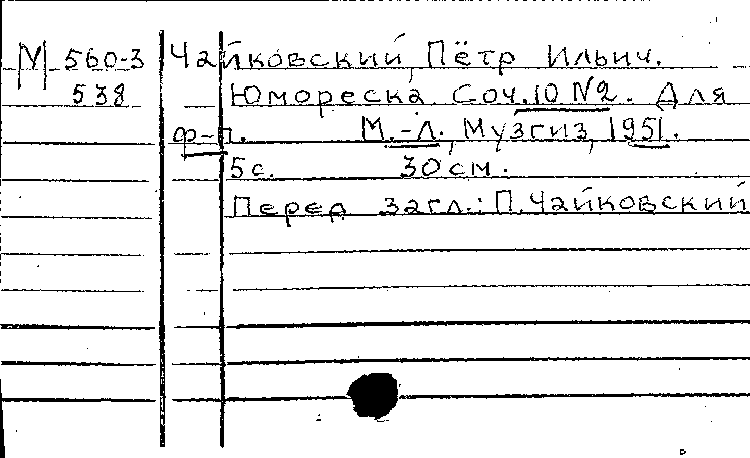 М 560-3 Чайковский, Пётр Ильич.
538 Юмореска. Соч.10 №2. Для
ф-п. М.-Л., Музгиз, 1951.
5с. 30см.
Перед загл.: П.Чайковский